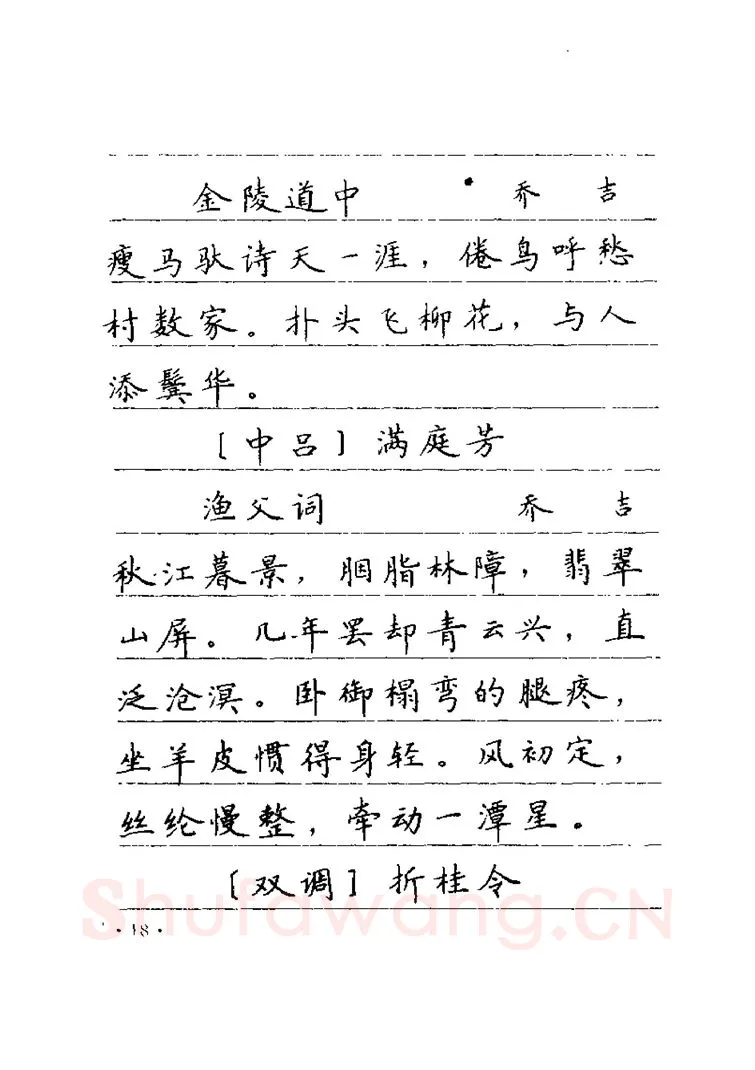 金陵道中 乔吉
瘦马驮诗天一涯，倦鸟呼愁
村数家。扑头飞柳花，与人
添鬓华。
［中吕］满庭芳
渔父词 乔吉
秋江暮景，胭脂林障，翡翠
山屏。几年罢却青云兴，直
泛沧溟。卧御榻弯的腿疼，
坐羊皮惯得身轻。风初定，
丝纶慢整，牵动一潭星。
［双调］折桂令
·18·
Shufawang.CN